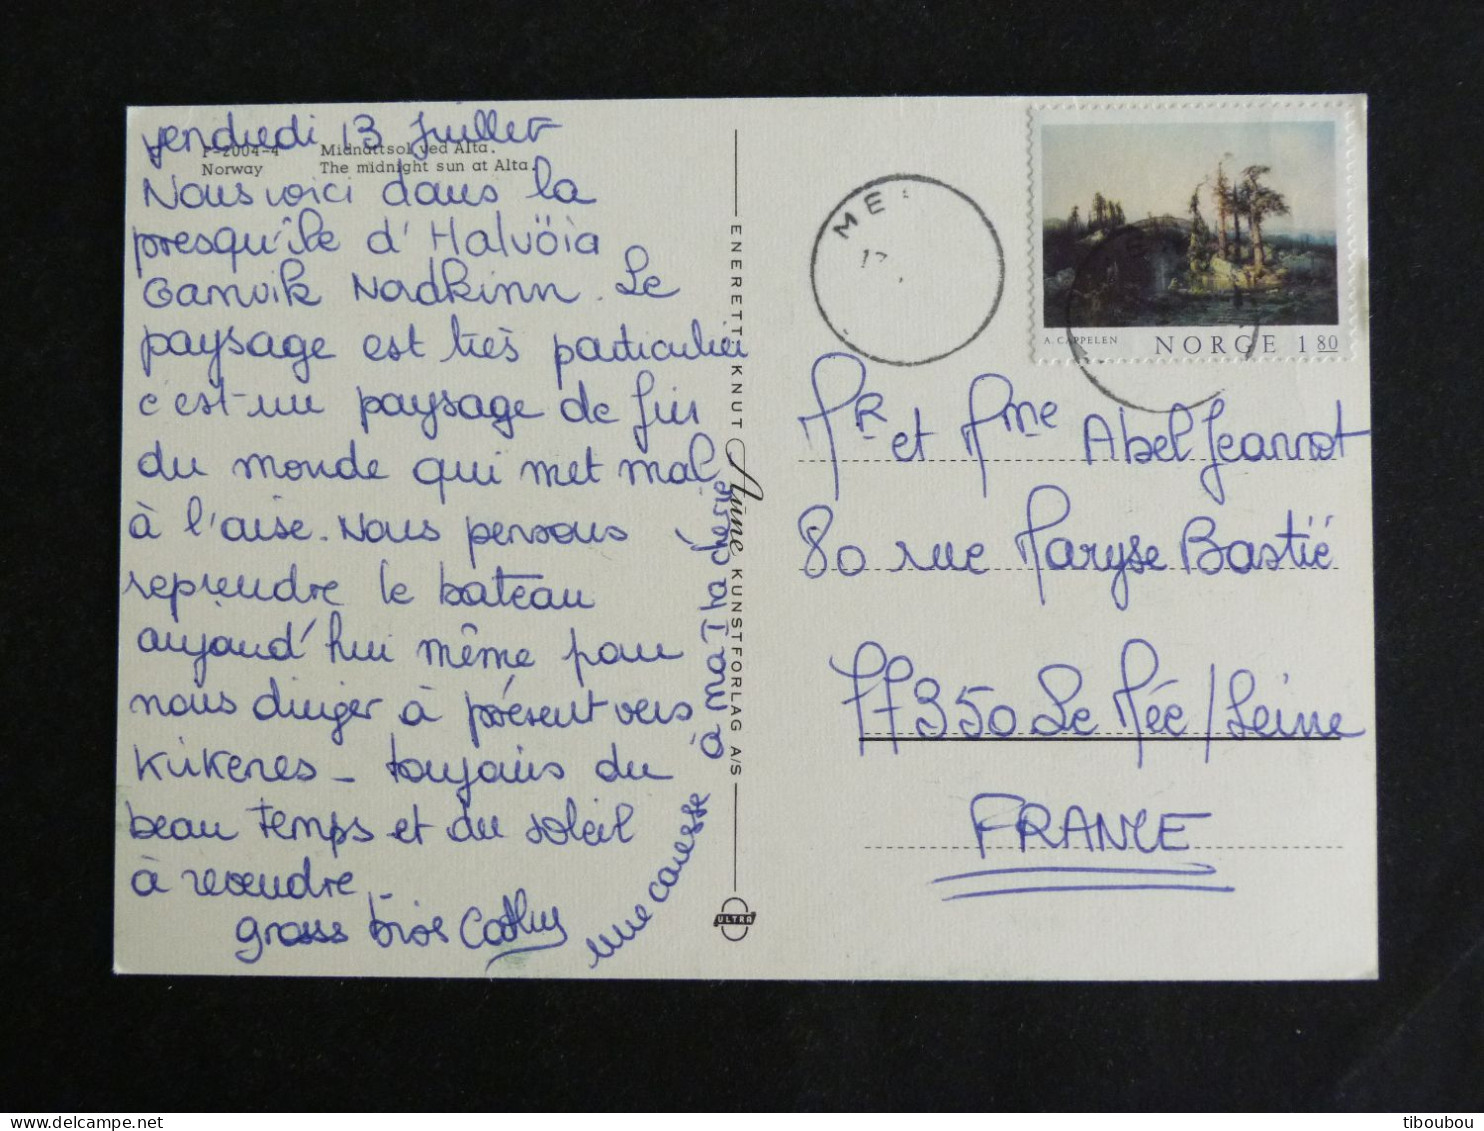 vendredi 13 Juillet
P-2004-4 Midnattsol ved Alta.
Norway The midnight sun at Alta.
Nous voici dans la
presqu'île d'Halvöia
Gamvik Nordkinn. Le
paysage est très particulier
c'est un paysage de fin
du monde qui met mal
à l'aise. Nous pensons
reprendre le bateau
aujourd'hui même pour
nous diriger à présent vers
Kirkenes - toujours du
beau temps et du soleil
à revendre.
grosses bises Cathy
une caresse
à ma
ENERETT: KNUT Aune KUNSTFORLAG A/S
ULTRA
ME
17
A. CAPPELEN NORGE 1 80
Mr et Mme Abel Jeannot
80 rue Maryse Bastié
77350 Le Mée/Seine
FRANCE
tiboubou